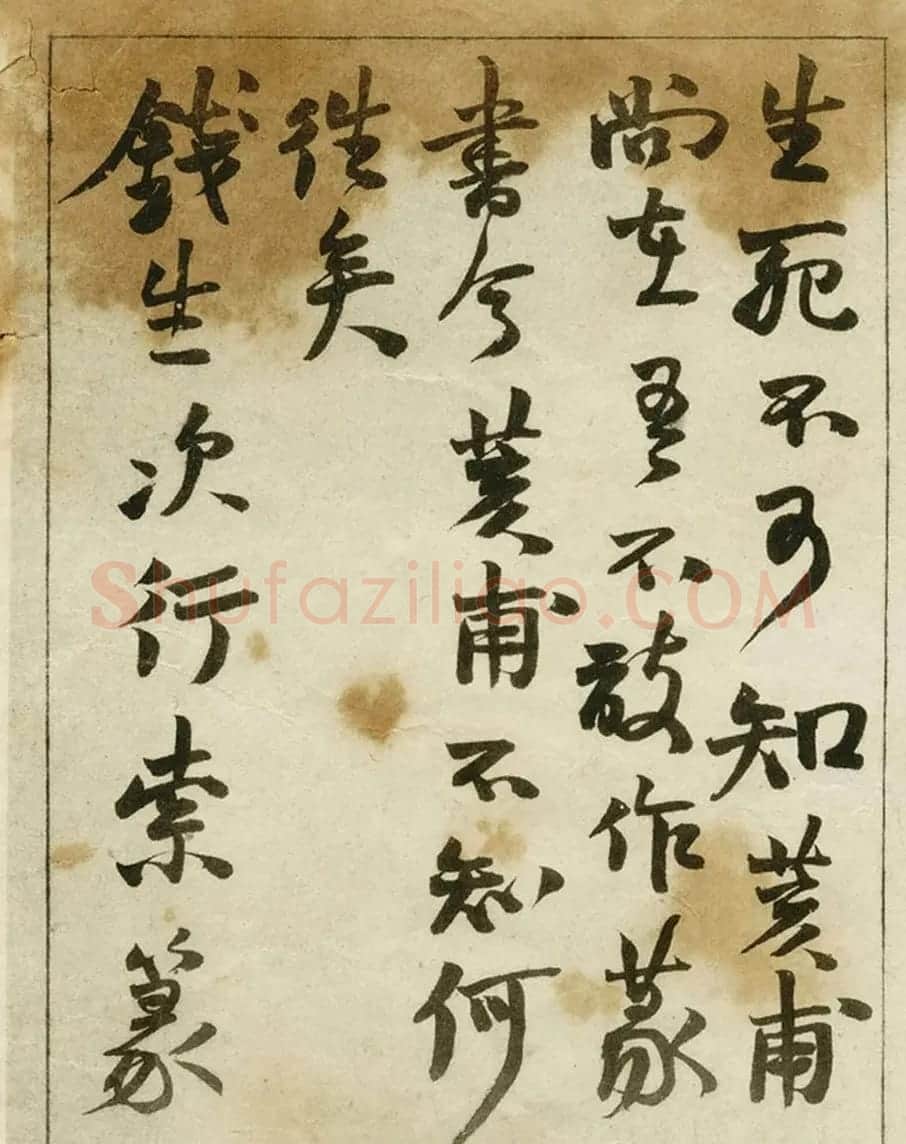 生死不可知英甫
尚在吾不敢作篆
書今英甫不知何
往矣
錢生次行索篆
Shufaziliao.COM